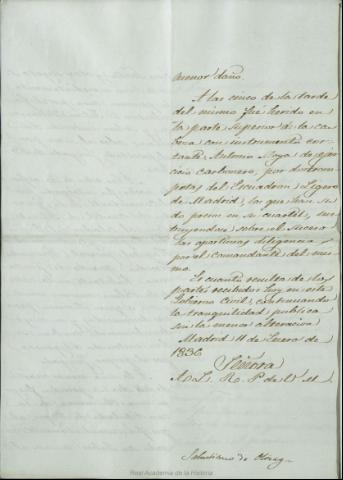 menor daño.
A las cinco de la tarde
del mismo fué herido en
la parte superior de la ca-
beza con instrumento cor-
tante, Antonio Moya de ejer-
cicio carbonero, por dos trom-
petas del Escuadron Ligero
de Madrid, los que han si-
do presos en su cuartel, ins-
truyendose sobre el suceso
las oportunas diligencias
por el comandante del mis-
mo.
Es cuanto resulta de los
partes recibidos hoy en este
Gobierno Civil, continuando
la tranquilidad publica
sin la menor alteracion
Madrid 11 de Enero de
1836
Señora
A. L. R. P. de V. M.
Salustiano de Olozag
Real Academia de la Historia